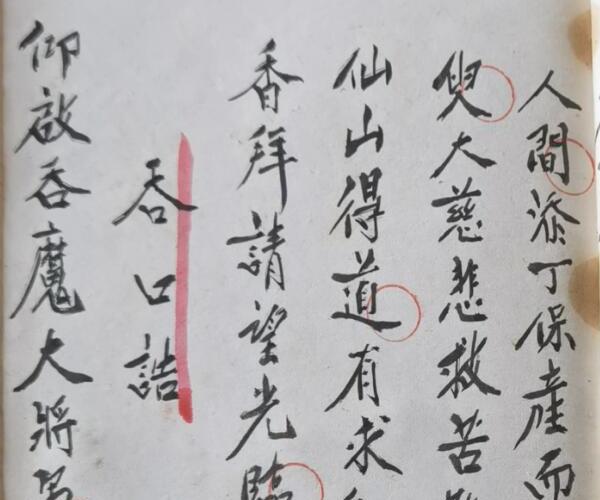 人間添丁保産而
叟大慈悲救苦
仙山得道有求
香拜請望光臨
吞口誥
仰啟吞魔大將